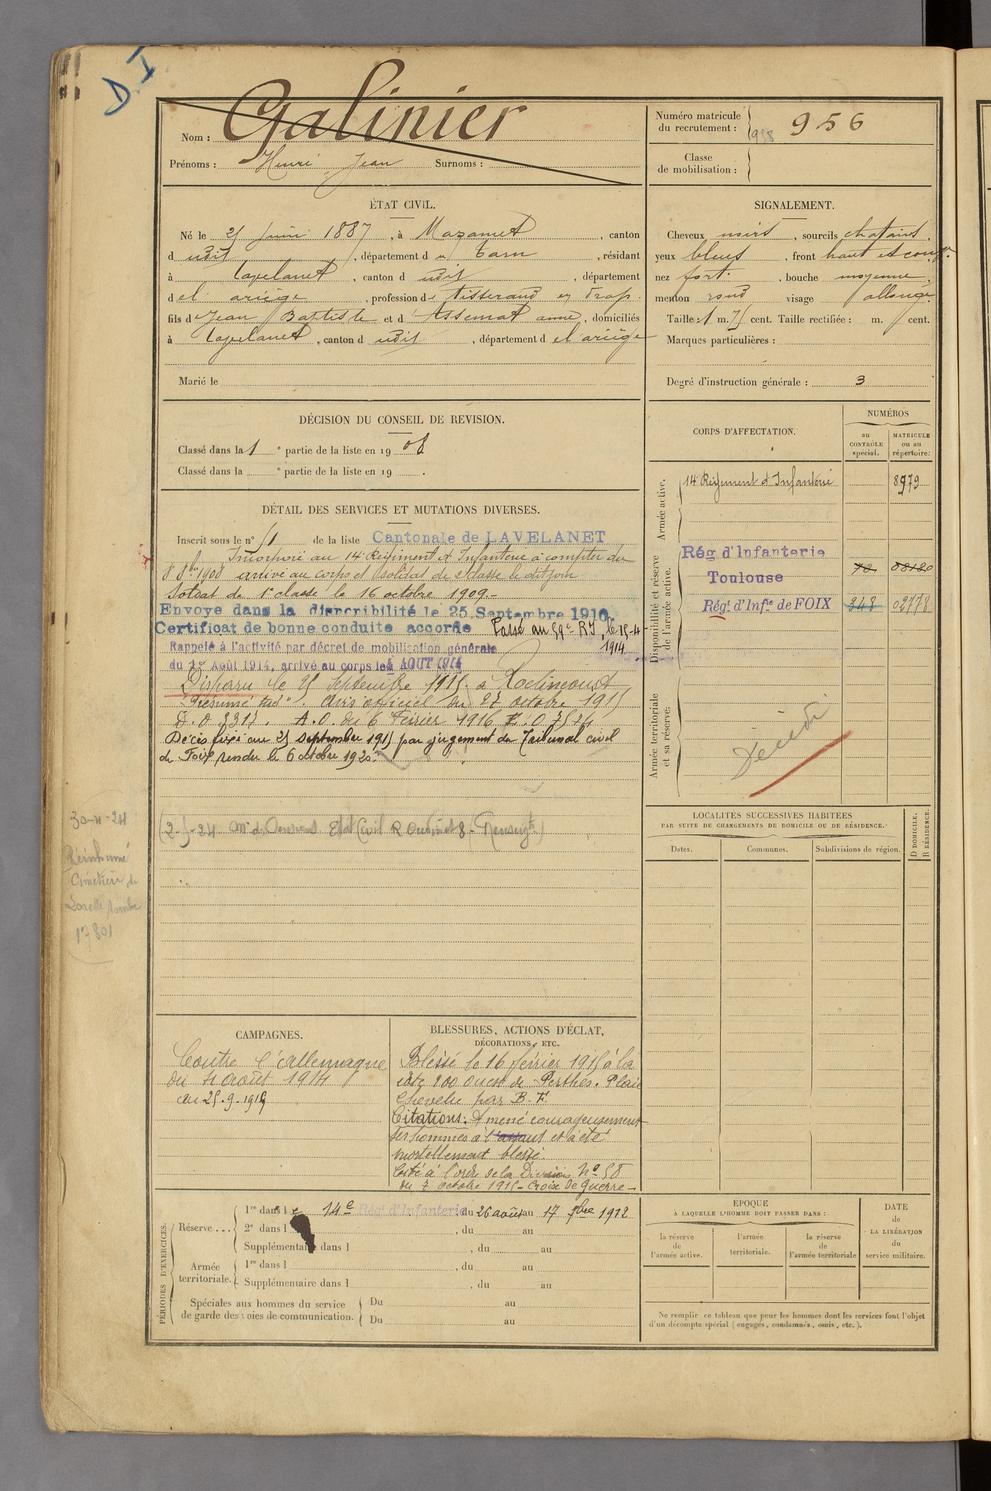 D I
Nom : Galinier
Prénoms : Henri Jean Surnoms :
Numéro matricule
du recrutement : 956
Classe
de mobilisation :
ÉTAT CIVIL.
Né le 25 juin 1887, à Mazamet, canton
d udit, département du Tarn, résidant
à Lavelanet, canton d udit, département
d el ariège, profession de Tisserand en drap.
fils de Jean Baptiste et d Assemat anne, domiciliés
à Lavelanet, canton d udit, département d el ariège
Marié le
SIGNALEMENT.
Cheveux noirs, sourcils chatains,
yeux bleus, front haut et
nez fort, bouche moyenne,
menton rond visage allongé
Taille : 1 m. 75 cent. Taille rectifiée : m. cent.
Marques particulières :
Degré d'instruction générale : 3
DÉCISION DU CONSEIL DE REVISION.
Classé dans la 1 e partie de la liste en 19 08
Classé dans la e partie de la liste en 19 .
CORPS D'AFFECTATION.
NUMÉROS
au
CONTRÔLE
spécial.
MATRICULE
ou au
répertoire.
Armée active.
14 Régiment d'Infanterie 8979
Disponibilité et réserve
de l'armée active.
Rég d'Infanterie
Toulouse
Rég! d'Infie de FOIX 348 02778
Armée territoriale
et sa réserve.
DÉTAIL DES SERVICES ET MUTATIONS DIVERSES.
Inscrit sous le n° 51 de la liste Cantonale de LAVELANET
Incorporé au 14 Régiment d'Infanterie à compter du
8 8bre 1908 arrivé au corps et soldat de 2e classe le dit jour
Soldat de 1e classe le 16 octobre 1909.-
Envoye dans la disponibilité le 25 Septembre 1910
Certificat de bonne conduite accordé Passé au 59e RI, le 15-4-
1914
Rappelé à l'activité par décret de mobilisation générale
du 1er Août 1914, arrivé au corps le 4 AOUT 1914
Disparu le 25 Septembre 1915 à Roclincourt
"Présumé tué". Avis officiel du 27 octobre 1915
A.O. du 6 Février 1916
Décès fixé au 25 septembre 1915 par jugement du Tribunal civil
de Foix rendu le 6 octobre 1920.
30-4-24
Réinhumé
Cimetière de
Lorette tombe
17801
Décédé
LOCALITÉS SUCCESSIVES HABITÉES
PAR SUITE DE CHANGEMENTS DE DOMICILE OU DE RÉSIDENCE.
Dates. Communes. Subdivisions de région. D DOMICILE. R RÉSIDENCE.
CAMPAGNES.
Contre l'allemagne
du 4 août 1914
au 25.9.1915
BLESSURES, ACTIONS D'ÉCLAT,
DÉCORATIONS, ETC.
Blessé le 16 février 1915 à la
côte 200 ouest de Perthes. Plaie
cheville par B.F.
Citations: A mené courageusement
ses hommes à l'assaut et a été
mortellement blessé.
Cité à l'ordre de la Division No 58
du 7 octobre 1915 - Croix de Guerre -
PÉRIODES D'EXERCICES.
Réserve ....
1re dans le 14e Rég! d'Infanterie du 26 août au 17 7bre 1912
2e dans l , du au
Supplémentaire dans l , du au
Armée
territoriale.
1re dans l , du au
Supplémentaire dans l , du au
Spéciales aux hommes du service
de garde des voies de communication.
Du au
Du au
ÉPOQUE
À LAQUELLE L'HOMME DOIT PASSER DANS :
la réserve
de
l'armée active.
l'armée
territoriale.
la réserve
de
l'armée territoriale
DATE
de
LA LIBÉRATION
du
service militaire.
Ne remplir ce tableau que pour les hommes dont les services font l'objet
d'un décompte spécial (engagés, condamnés, omis, etc.).